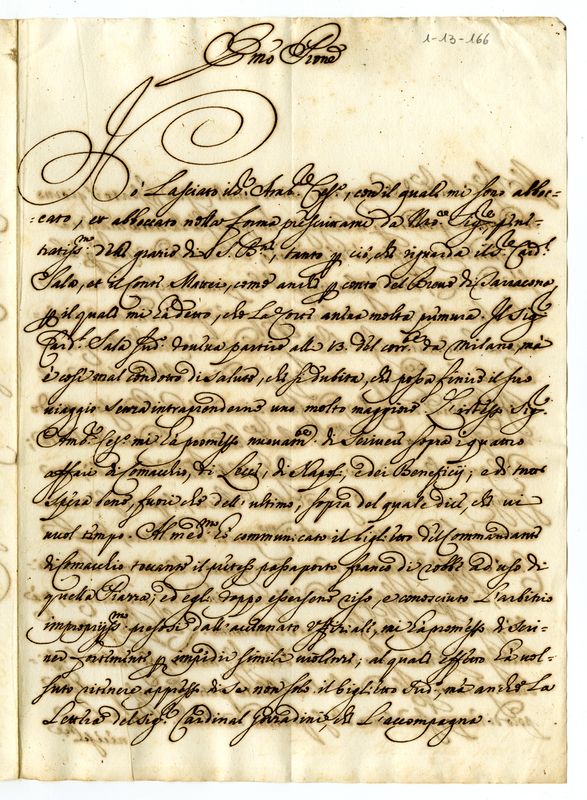 1-13-166
Emo Prone
Hò lasciato il Sr. Amb.re Ces.o, con il quale mi sono abboc-
cato, et abboccato nella forma prescrittami da Vra Sig.
della grazie di S. B.ne, tanto p ciò, che riguarda il Sr. Card.l
Sala, et il Conte Marcis, come anche p conto del Breve di Tarracona,
p il quale mi hà detto, che la Corte aveva molta premura. Il Sig.r
Card.l Sala doveva partire alli 13. del corr.te da Milano, mà
è così mal condotto di salute, che si dubita, che possa finire il suo
viaggio senza intraprenderne uno molto maggiore. L'istesso Sig.r
Amb.re Ces.o mi hà promesso nuovam.te di scrivere sopra i quattro
affari di Comacchio, di Lecce, di Napoli, e dei Beneficij; e di tutti
spera bene, fuori che dell'ultimo, sopra del quale dice, che vi
vuol tempo. Al med.mo hò communicato il biglietto del Commandante
di Comacchio toccante il passaporto franco di robbe ad uso di
quella Piazza, ed egli doppo essersene riso, e conosciuto l'arbitrio
impropriss.mo presosi dall'accennato Uffiziale, mi hà promesso di scri-
ver fortemente p impedir simili violenze; al quale effetto hà vol-
suto ritenere appresso di se non solo il biglietto sud.o, mà anche la
lettera del Sig.r Cardinal che l'accompagna.